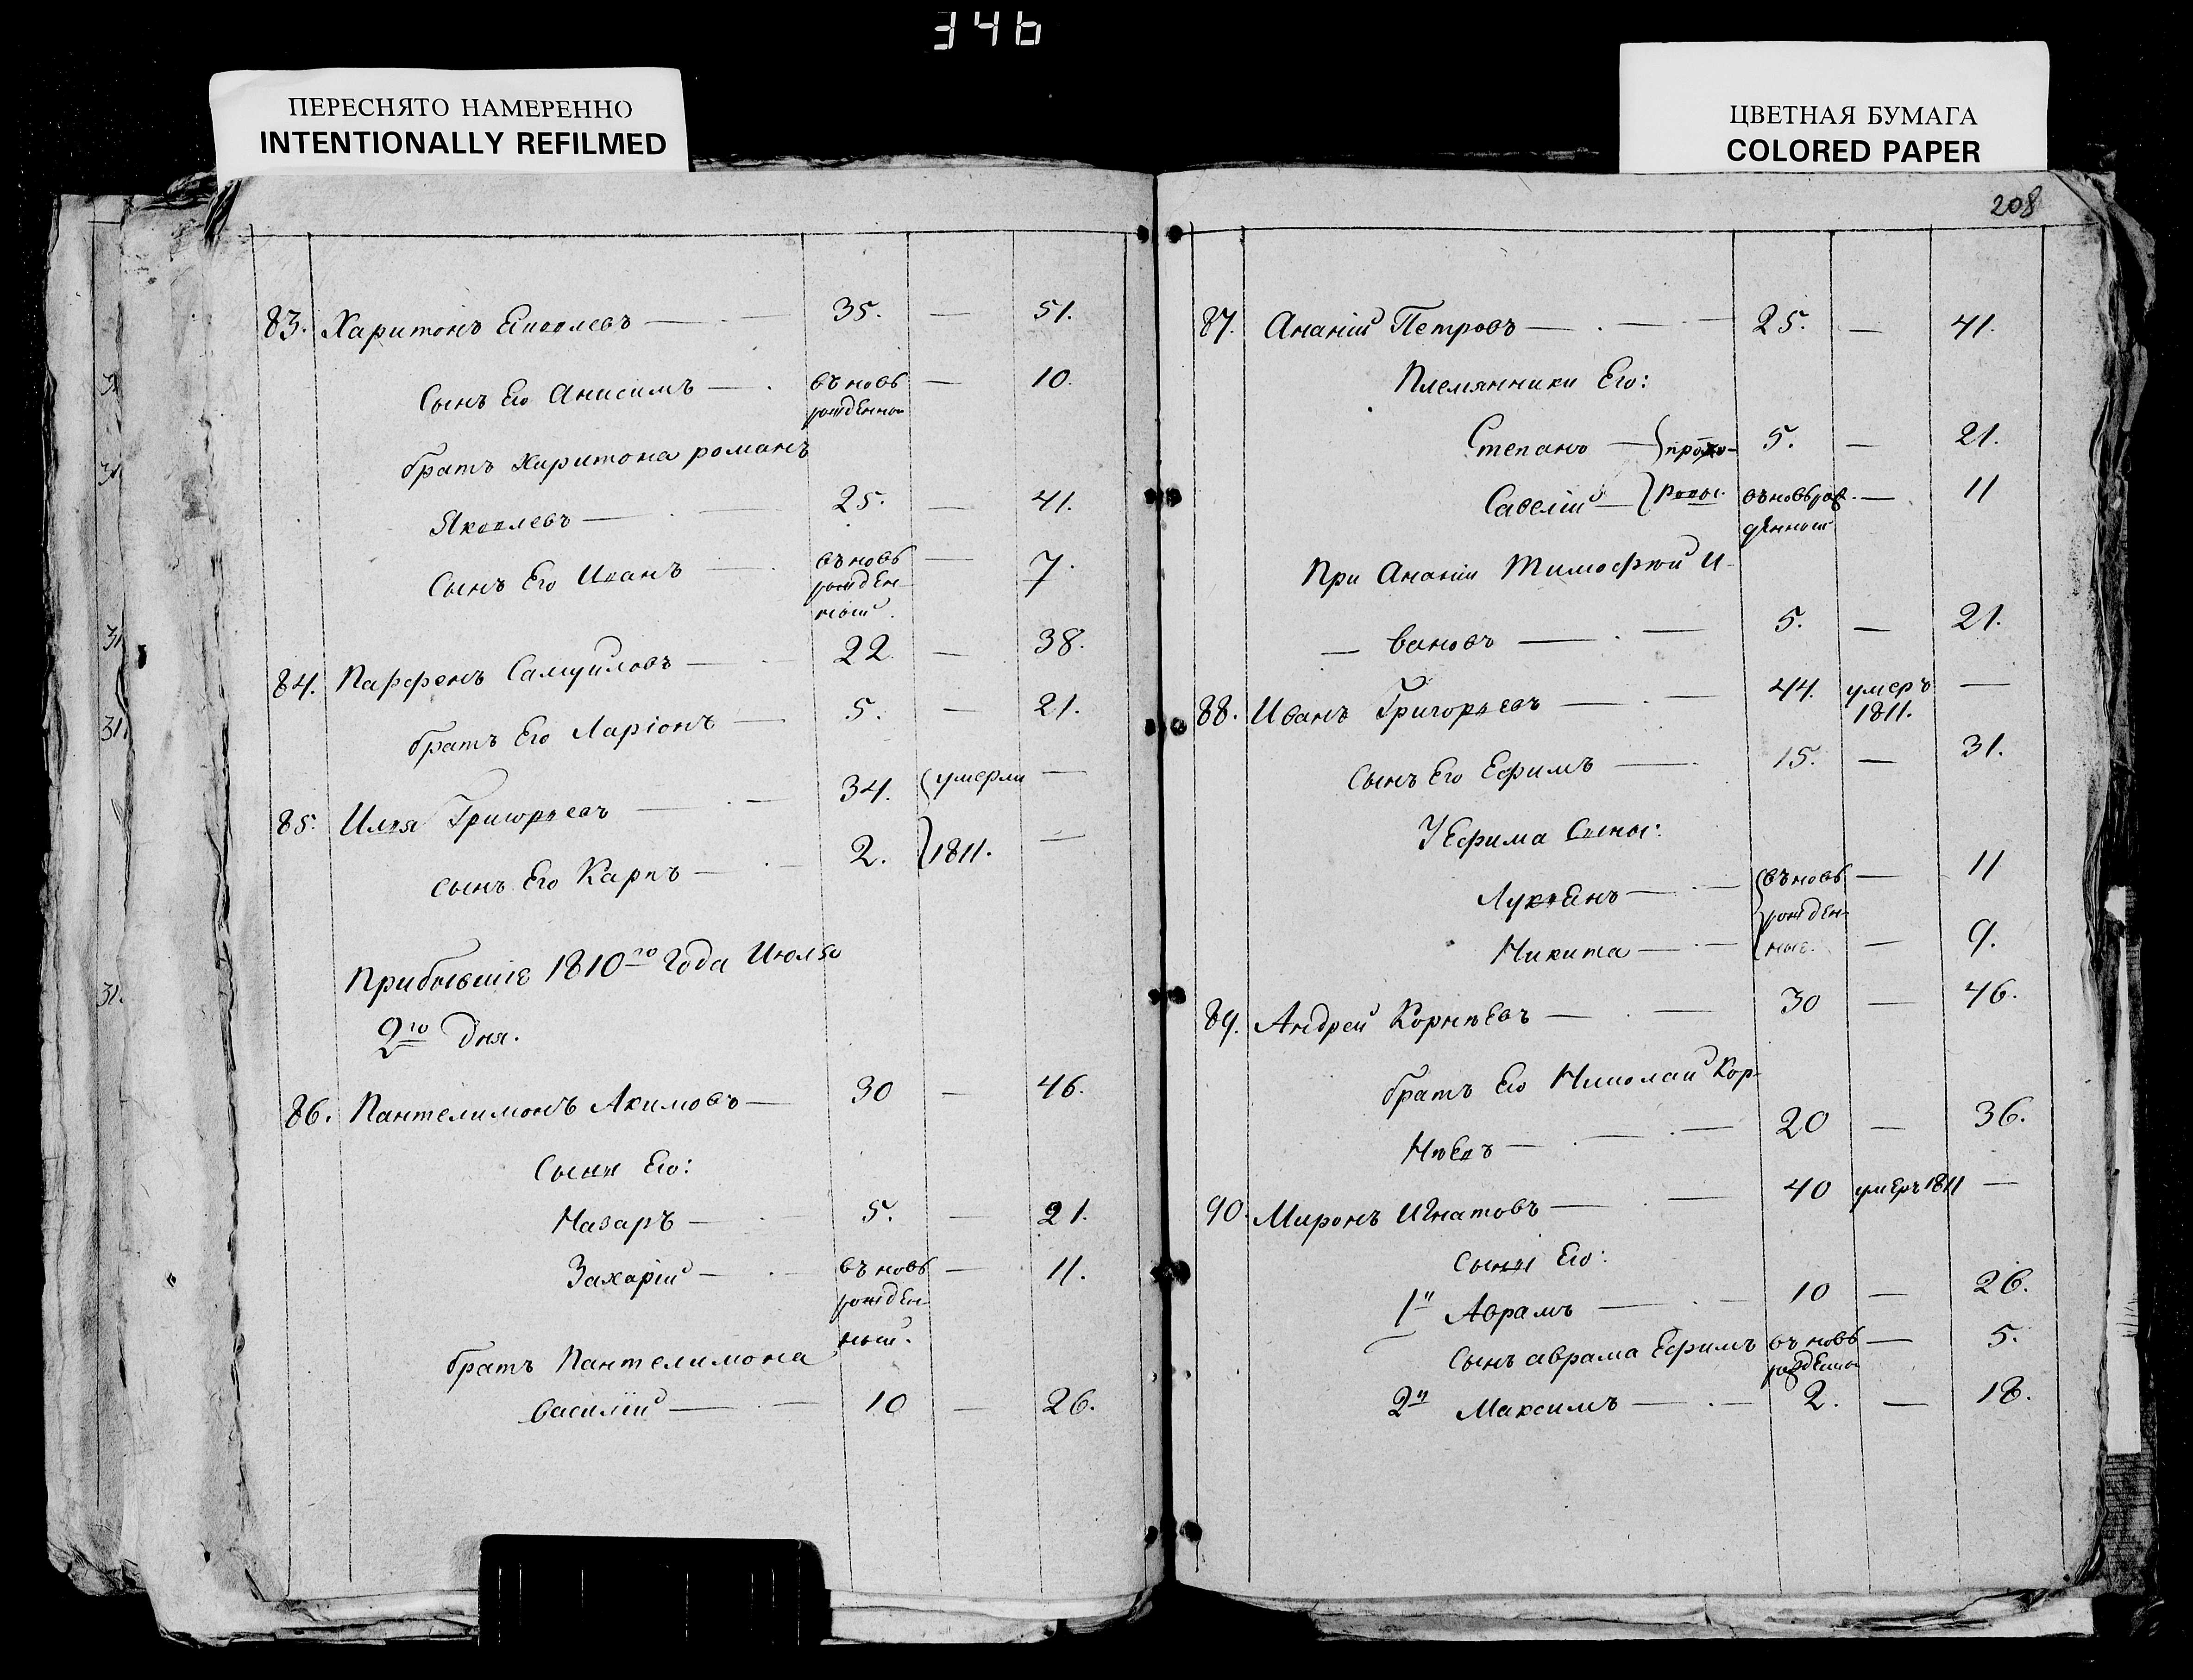 346
ПЕРЕСНЯТО НАМЕРЕННО
INTENTIONALLY REFILMED
ЦВЕТНАЯ БУМАГА
COLORED PAPER
83. Харитонъ Яковлевъ — 35. — 51.
Сынъ Его Анисимъ — въ новь — 10.
рожденной
братъ Харитона романъ
Яковлевъ — 25. — 41.
Сынъ Его Иванъ — въ новь — 7.
рожден-
ный.
84. Парфенъ Самуиловъ — 22. — 38.
братъ Его Ларіонъ — 5. — 21.
85. Илья Григорьевъ — 34. умерли —
сынъ Его Карпъ — 2. 1811. —
Прибывшіе 1810го года Июля
9го дня.
86. Пантелимонъ Акимовъ — 30 — 46.
Сыны Его:
Назаръ — 5. — 21.
Захарій — въ новь — 11.
рожден-
ный.
братъ Пантелимона
василій — 10 — 26.
31.
31.
31.
208
87. Ананій Петровъ — 25. — 41.
Племянники Его:
Степанъ — 5. — 21.
Савелій — въ новь рож- — 11
денной
При Ананіи Тимофей И-
— вановъ — 5. — 21.
88. Иванъ Григорьевъ — 44. умеръ —
1811.
Сынъ Его Ефимъ — 15. — 31.
У Ефима Сыны:
Лукьянъ — въ новь — 11
рожден-
Никита — ные. — 9.
89. Андрей Корнѣевъ — 30 — 46.
братъ Его Николай Кор-
нѣевъ — 20 — 36.
90. Миронъ Игнатовъ — 40 умеръ 1811 —
Сыны Его:
1й Аврамъ — 10 — 26.
Сынъ аврама Ефимъ въ новь — 5.
рожденной
2й Максимъ — 2. — 18.